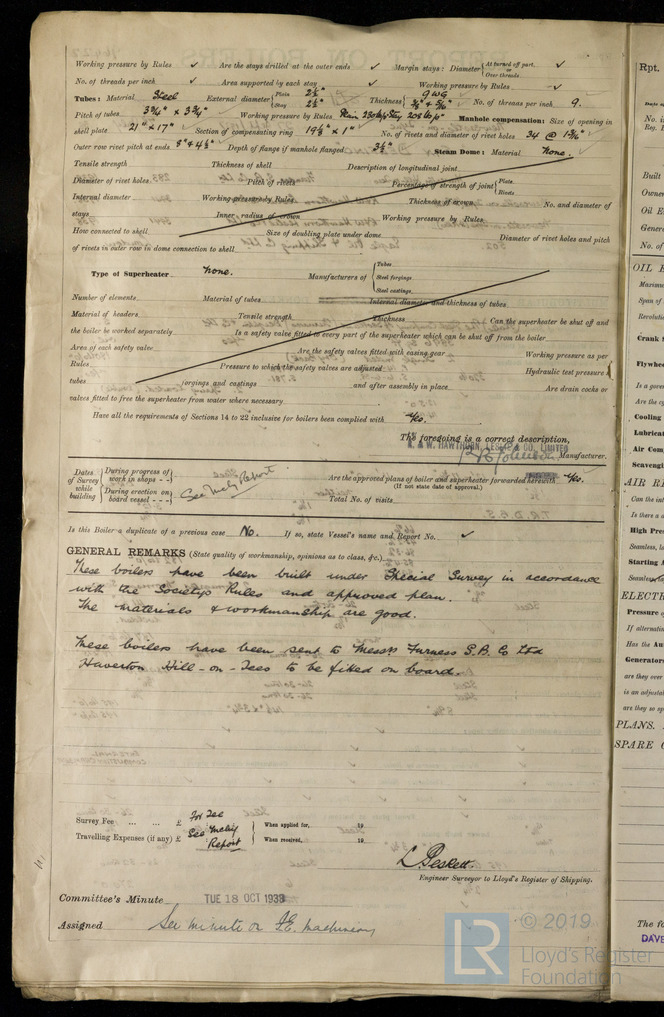 Working pressure by Rules ✓ Are the stays drilled at the outer ends ✓ Margin stays: Diameter { At turned off part, or Over threads ✓
No. of threads per inch ✓ Area supported by each stay ✓ Working pressure by Rules ✓
Tubes: Material Steel External diameter { Plain 2½" Stay 2½" Thickness { 9 WG No. of threads per inch 9.
Pitch of tubes 3¾" × 3¾" Working pressure by Rules Manhole compensation: Size of opening in
shell plate 21" × 17" Section of compensating ring 19½" × 1" No. of rivets and diameter of rivet holes 34 @
Outer row rivet pitch at ends Depth of flange if manhole flanged 3½" Steam Dome: Material None.
Tensile strength Thickness of shell Description of longitudinal joint
Diameter of rivet holes Pitch of rivets Percentage of strength of joint { Plate Rivets
Internal diameter Working pressure by Rules Thickness of crown No. and diameter of
stays Inner radius of crown Working pressure by Rules
How connected to shell Size of doubling plate under dome Diameter of rivet holes and pitch
of rivets in outer row in dome connection to shell
Type of Superheater None. Manufacturers of { Tubes Steel forgings Steel castings
Number of elements Material of tubes Internal diameter and thickness of tubes
Material of headers Tensile strength Thickness Can the superheater be shut off and
the boiler be worked separately Is a safety valve fitted to every part of the superheater which can be shut off from the boiler
Area of each safety valve Are the safety valves fitted with easing gear Working pressure as per
Rules Pressure to which the safety valves are adjusted Hydraulic test pressure
tubes forgings and castings and after assembly in place Are drain cocks or
valves fitted to free the superheater from water where necessary
Have all the requirements of Sections 14 to 22 inclusive for boilers been complied with Yes.
The foregoing is a correct description,
R. & W. HAWTHORN, LESLIE & CO. LIMITED
Manufacturer.
Dates of Survey while building { During progress of work in shops - - During erection on board vessel - - - See Mchy Report
Are the approved plans of boiler and superheater forwarded herewith Yes.
(If not state date of approval.)
Total No. of visits
Is this Boiler a duplicate of a previous case No. If so, state Vessel's name and Report No. ✓
GENERAL REMARKS (State quality of workmanship, opinions as to class, &c.)
These boilers have been built under Special Survey in accordance
with the Societys Rules and approved plan.
The materials & workmanship are good.
These boilers have been sent to Messrs Furness S.B. Co Ltd
Haverton Hill-on-Tees to be fitted on board.
Survey Fee ... ... £ For Fee When applied for, 19
Travelling Expenses (if any) £ See Mchy Report When received, 19
L Peskett.
Engineer Surveyor to Lloyd's Register of Shipping.
Committee's Minute TUE 18 OCT 1938
Assigned See minute on F.E. machinery
LR © 2019
Lloyd's Register
Foundation
Rpt.
Built
Owne
Oil E
Gener
No. of
OIL
Maximu
Span of
Revoluti
Crank
Flywhe
Is a gove
Are the cy
Cooling
Lubricat
Air Com
Scaveng
AIR RE
Can the int
Is there a
High Pres
Seamless, la
Starting A
Seamless
ELECTR
Pressure o
If alternatin
Has the Au
Generator
are they over
is an adjustab
are they so sp
PLANS.
SPARE
The fo
DAVE